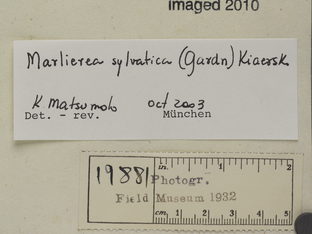 Imaged 2010
Marlierea sylvatica (Gardn) Kiaersk
K Matsumoto oct 2003
Det. - rev. München
19881 Photogr.
Field Museum 1932
in. 1 2
cm. 1 2 3 4 5